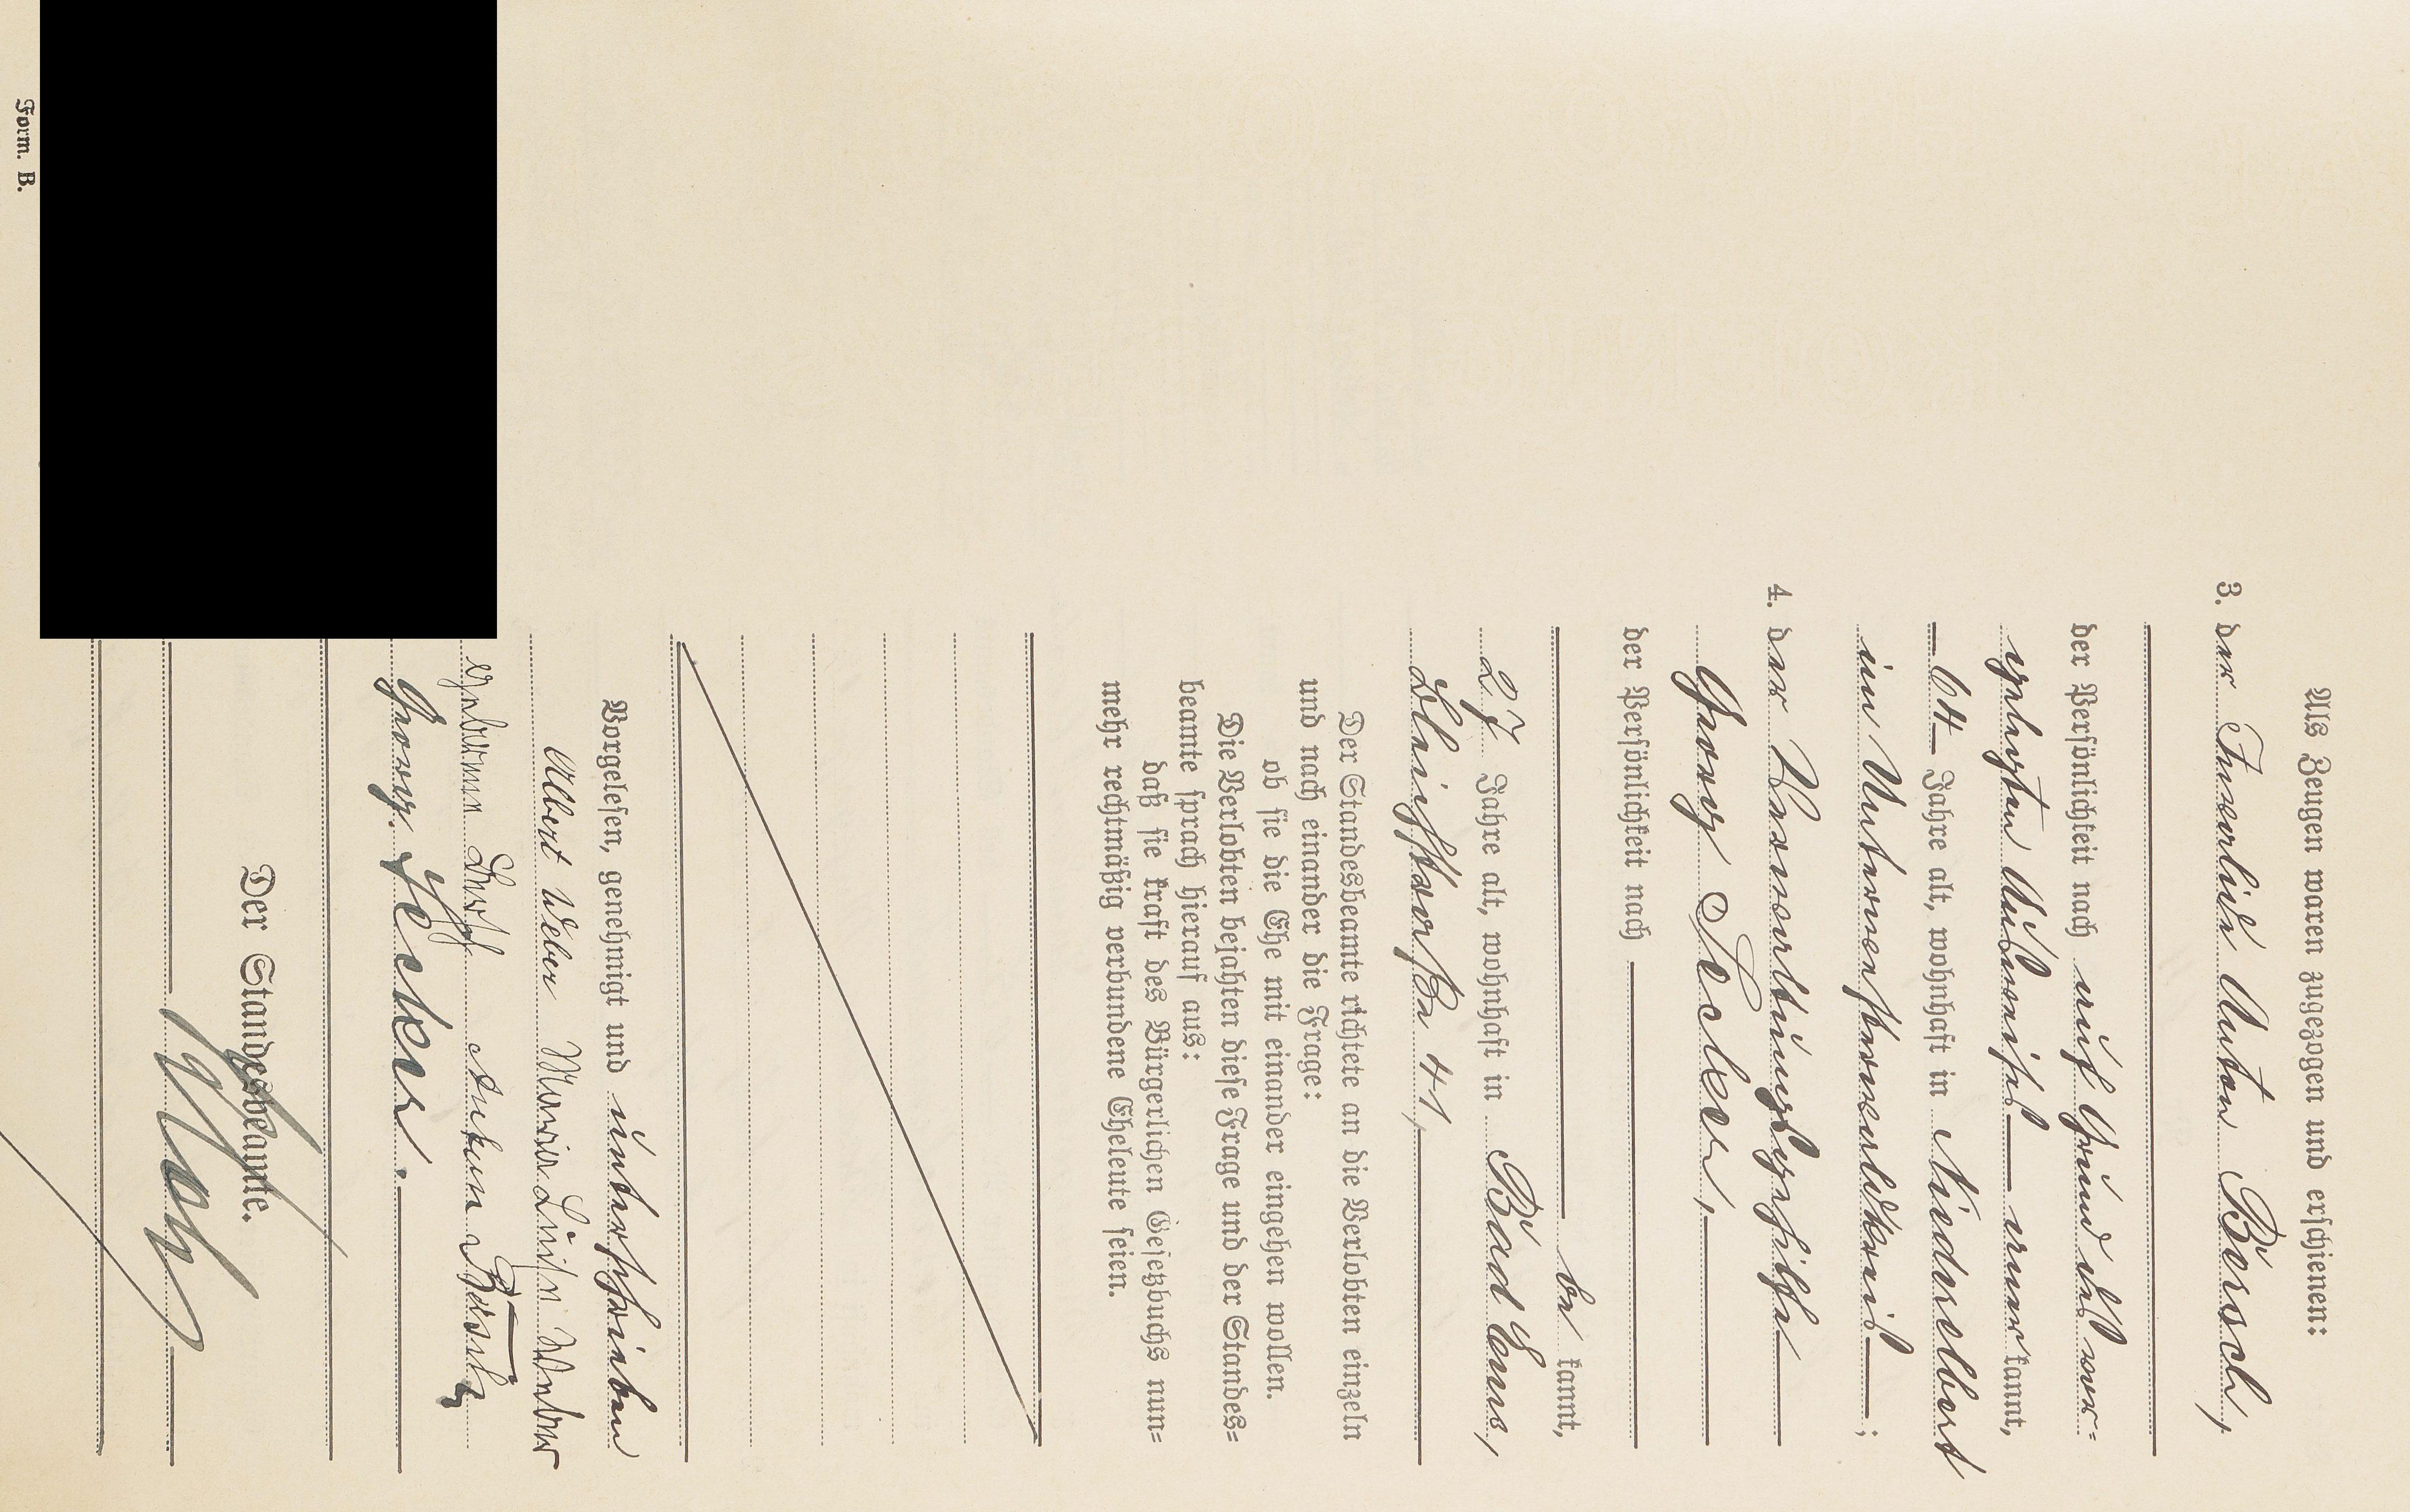 Als Zeugen waren zugezogen und erschienen:
3. der Invalide Anton Börsch,
der Persönlichkeit nach auf Grund des vor=
gelegten Ausweises anerkannt,
64 Jahre alt, wohnhaft in Niederelbert
im Unterwesterwaldkreis;
4. der Verwaltungsgehilfe
Georg Becker,
der Persönlichkeit nach
be kannt,
27 Jahre alt, wohnhaft in Bad Ems,
Bleichstraße 41,
Der Standesbeamte richtete an die Verlobten einzeln
und nach einander die Frage:
ob sie die Ehe mit einander eingehen wollen.
Die Verlobten bejahten diese Frage und der Standes=
beamte sprach hierauf aus:
daß sie kraft des Bürgerlichen Gesetzbuchs nun=
mehr rechtmäßig verbundene Eheleute seien.
Vorgelesen, genehmigt und unterschrieben
Albert Weber Maria Luise Weber
geborene Anton Börsch
Georg Becker.
Der Standesbeamte.
Form. B.